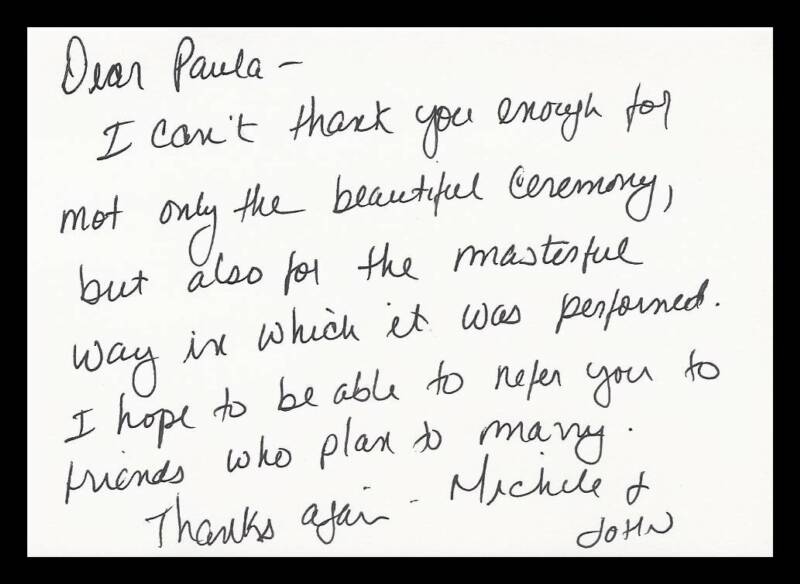 Dear Paula -
I can't thank you enough for
not only the beautiful ceremony,
but also for the masterful
way in which it was performed.
I hope to be able to refer you to
friends who plan to marry.
Thanks again - Michele &
JOHN